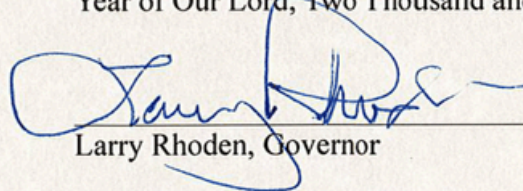 Year of Our Lord, Two Thousand and
Larry Rhoden, Governor